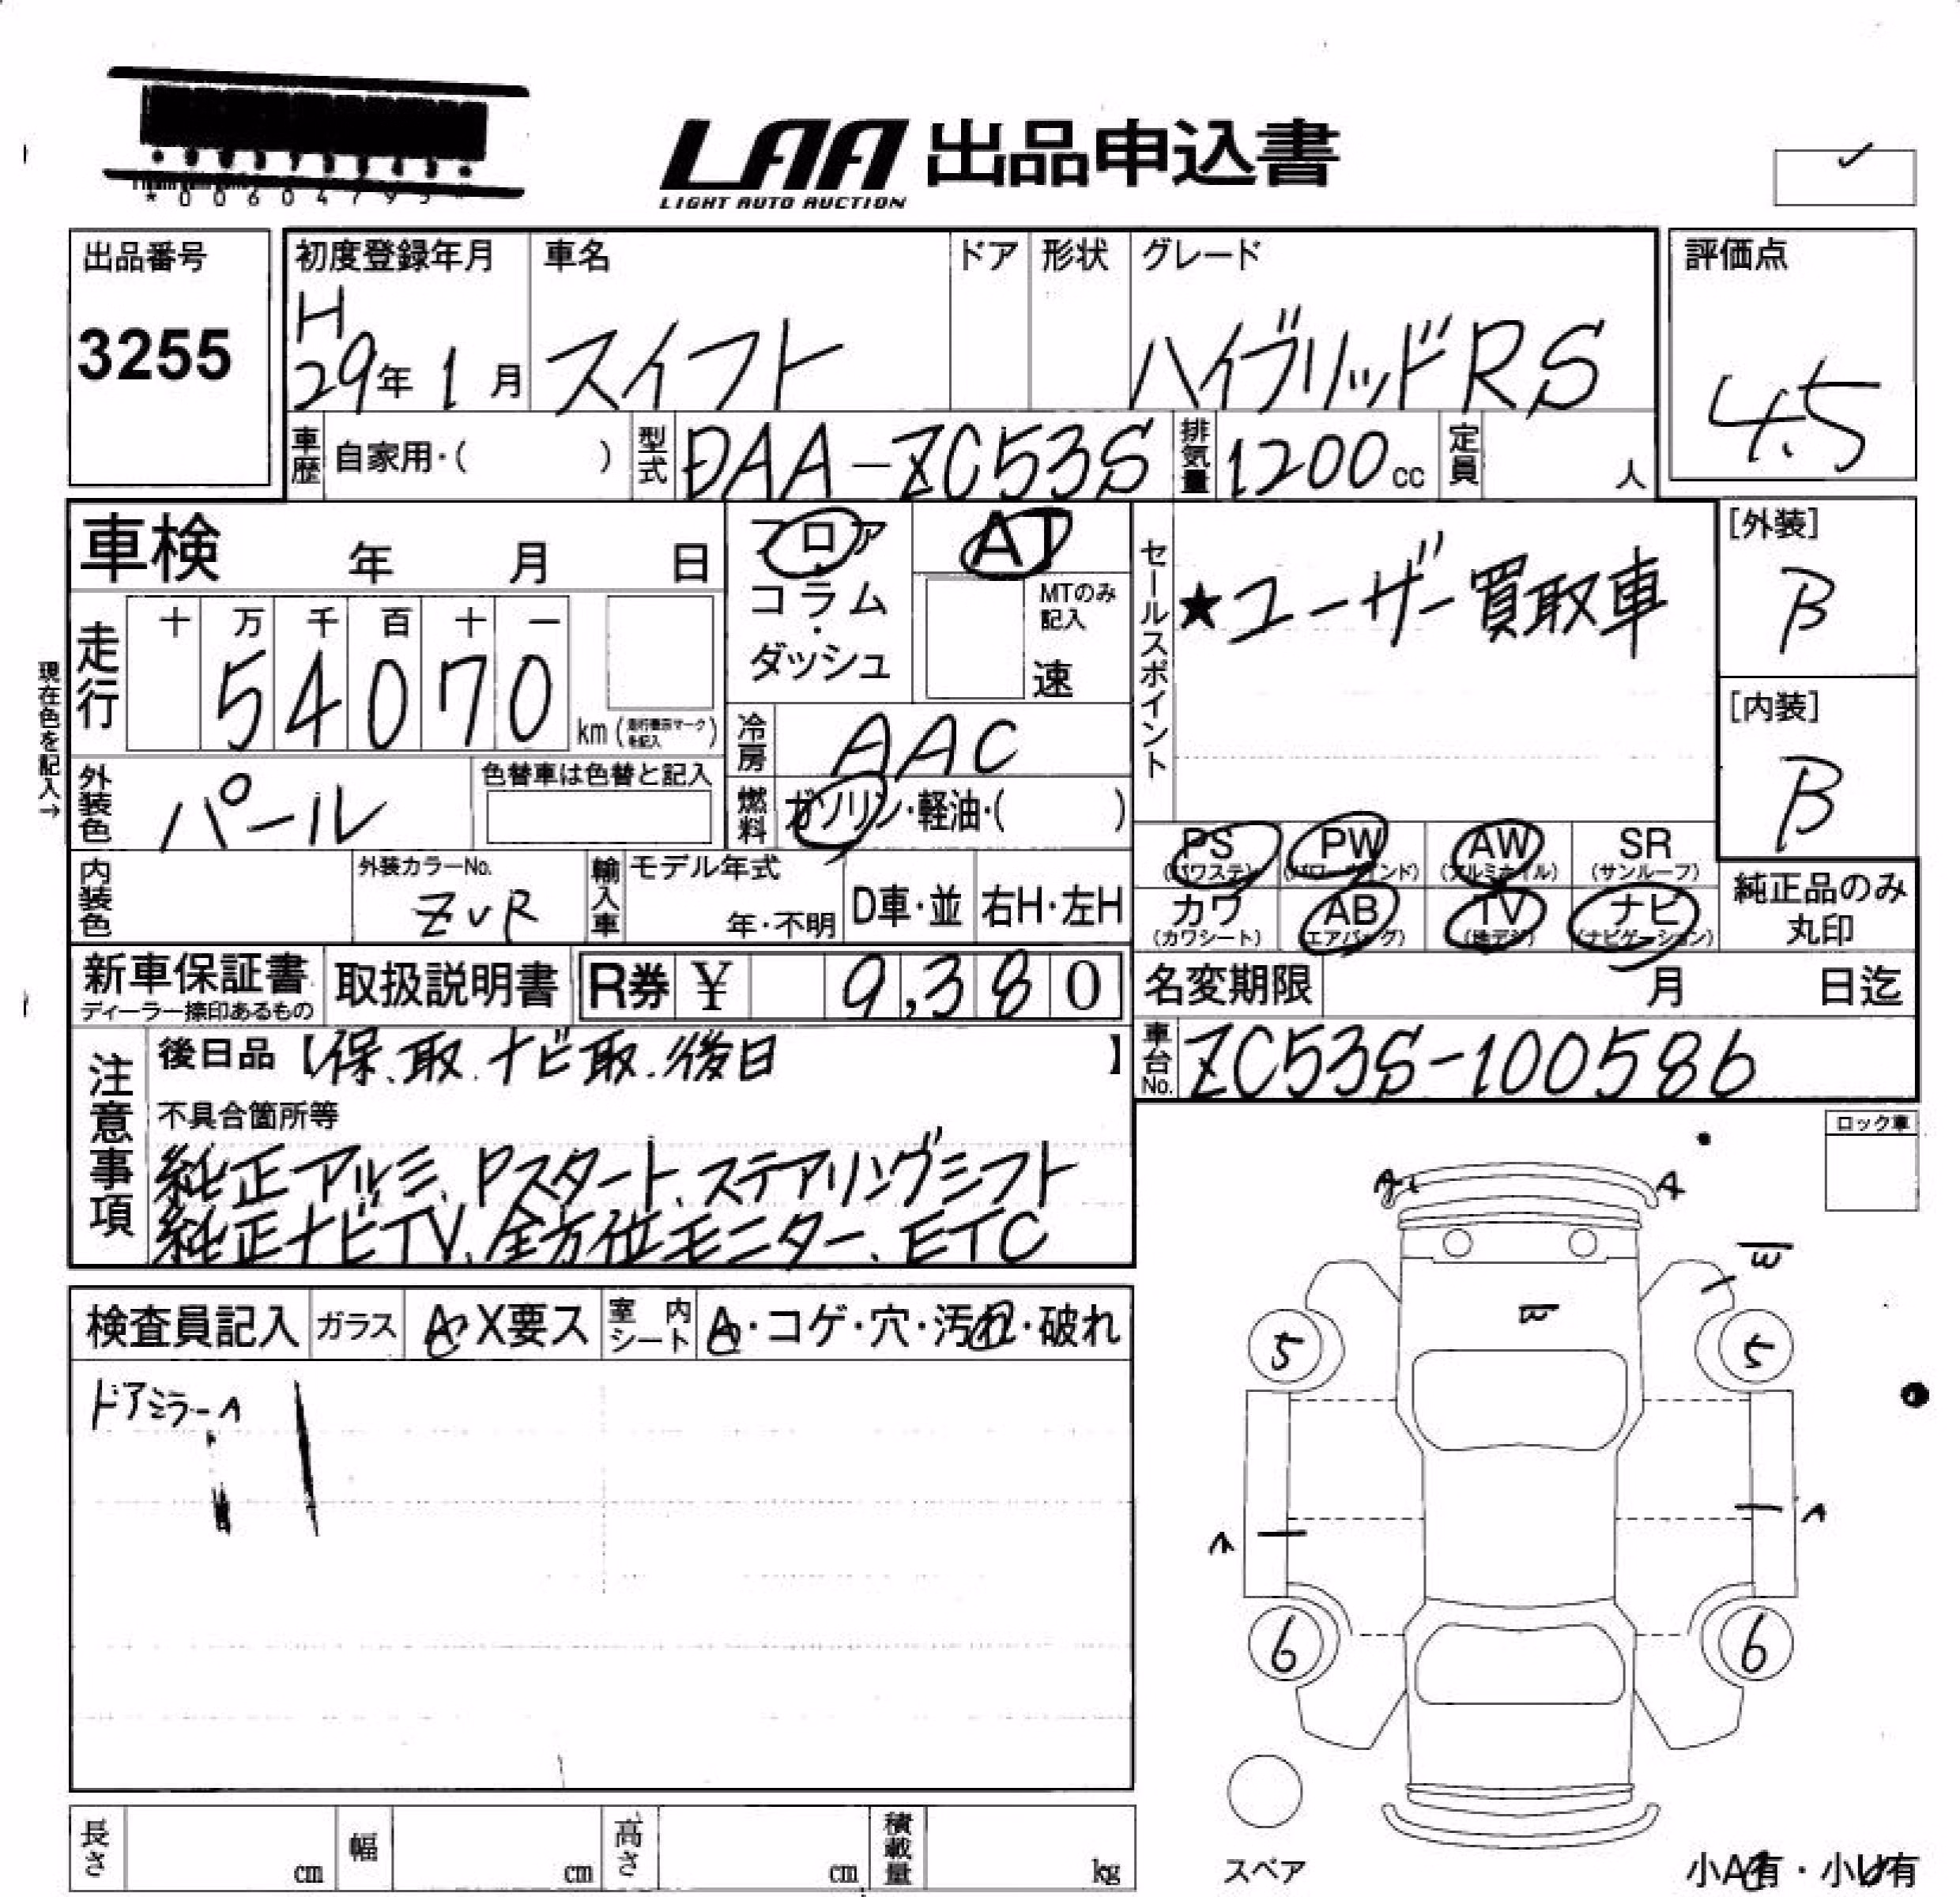 *00604795*
LAA 出品申込書
LIGHT AUTO AUCTION
出品番号
3255
初度登録年月
H
29年 1月
車名
スイフト
ドア
形状
グレード
ハイブリッドRS
評価点
4.5
車歴 自家用・( )
型式 DAA-ZC53S
排気量 1200cc
定員 人
車検 年 月 日
フロア
・
コラム
・
ダッシュ
AT
MTのみ
記入
速
セールスポイント
★ユーザー買取車
[外装]
B
[内装]
B
現在色を記入→
走行
十 万 千 百 十 一
54070
km(走行表示マークを記入)
冷房 AAC
燃料 ガソリン・軽油・( )
外装色 パール
色替車は色替と記入
PS (パワステ)
PW (パワーウインド)
AW (アルミホイル)
SR (サンルーフ)
カワ (カワシート)
AB (エアバッグ)
TV (地デジ)
ナビ (ナビゲーション)
純正品のみ
丸印
内装色
外装カラーNo.
ZVR
輸入車
モデル年式
年・不明
D車・並
右H・左H
新車保証書
ディーラー捺印あるもの
取扱説明書
R券 ¥ 9,380
名変期限 月 日迄
車台No. ZC53S-100586
注意事項
後日品【保.取.ナビ取.後日】
不具合箇所等
純正アルミ、Pスタート、ステアリングシフト
純正ナビTV、全方位モニター、ETC
ロック車
検査員記入
ガラス A X要ス
室内シート A・コゲ・穴・汚れ・破れ
ドアミラーA
A
A
W
W
5
5
A
A
6
6
スペア
小A有・小U有
長さ cm
幅 cm
高さ cm
積載量 kg